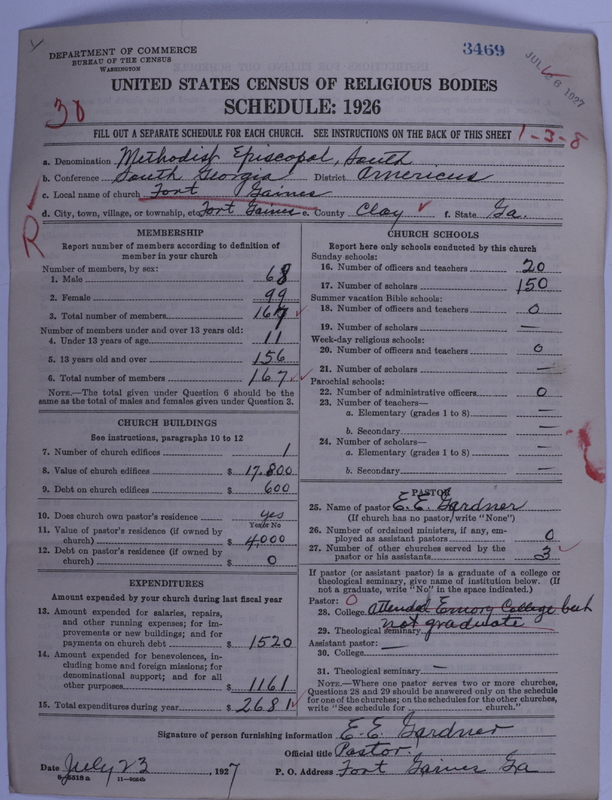 DEPARTMENT OF COMMERCE
BUREAU OF THE CENSUS
WASHINGTON
3469
JUL 26 1927
UNITED STATES CENSUS OF RELIGIOUS BODIES
SCHEDULE: 1926
38
FILL OUT A SEPARATE SCHEDULE FOR EACH CHURCH. SEE INSTRUCTIONS ON THE BACK OF THIS SHEET
1-3-8
a. Denomination Methodist Episcopal, South
b. Conference South Georgia District Americus
c. Local name of church Fort Gaines
d. City, town, village, or township, etc. Fort Gaines e. County Clay f. State Ga.
R
MEMBERSHIP
Report number of members according to definition of
member in your church
Number of members, by sex:
1. Male 68
2. Female 99
3. Total number of members 167
Number of members under and over 13 years old:
4. Under 13 years of age 11
5. 13 years old and over 156
6. Total number of members 167
NOTE.—The total given under Question 6 should be the
same as the total of males and females given under Question 3.
CHURCH BUILDINGS
See instructions, paragraphs 10 to 12
7. Number of church edifices 1
8. Value of church edifices $ 17,800
9. Debt on church edifices $ 600
10. Does church own pastor's residence yes
Yes or No
11. Value of pastor's residence (if owned by
church) $ 4,000
12. Debt on pastor's residence (if owned by
church) $ 0
EXPENDITURES
Amount expended by your church during last fiscal year
13. Amount expended for salaries, repairs,
and other running expenses; for im-
provements or new buildings; and for
payments on church debt $ 1520
14. Amount expended for benevolences, in-
cluding home and foreign missions; for
denominational support; and for all
other purposes $ 1161
15. Total expenditures during year $ 2681
CHURCH SCHOOLS
Report here only schools conducted by this church
Sunday schools:
16. Number of officers and teachers 20
17. Number of scholars 150
Summer vacation Bible schools:
18. Number of officers and teachers 0
19. Number of scholars —
Week-day religious schools:
20. Number of officers and teachers 0
21. Number of scholars —
Parochial schools:
22. Number of administrative officers 0
23. Number of teachers—
a. Elementary (grades 1 to 8) —
b. Secondary —
24. Number of scholars—
a. Elementary (grades 1 to 8) —
b. Secondary —
PASTOR
25. Name of pastor E. E. Gardner
(If church has no pastor, write "None")
26. Number of ordained ministers, if any, em-
ployed as assistant pastors 0
27. Number of other churches served by the
pastor or his assistants 3
If pastor (or assistant pastor) is a graduate of a college or
theological seminary, give name of institution below. (If
not a graduate, write "No" in the space indicated.)
Pastor: 0
28. College Attended Emory College but
29. Theological seminary not graduate
Assistant pastor: —
30. College
31. Theological seminary —
NOTE.—Where one pastor serves two or more churches,
Questions 28 and 29 should be answered only on the schedule
for one of the churches; on the schedules for the other churches,
write "See schedule for church."
Signature of person furnishing information E. E. Gardner
Official title Pastor.
Date July 23, 1927 P. O. Address Fort Gaines Ga